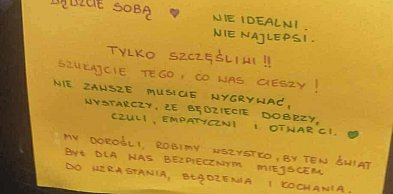 BĄDŹCIE SOBĄ
NIE IDEALNI.
NIE NAJLEPSI.
TYLKO SZCZĘŚLIWI!!
SZUKAJCIE TEGO, CO WAS CIESZY!
NIE ZAWSZE MUSICIE WYGRYWAĆ,
WYSTARCZY, ŻE BĘDZIECIE DOBRZY,
CZULI, EMPATYCZNI I OTWARCI.
MY DOROŚLI, ROBIMY WSZYSTKO, BY TEN ŚWIAT
BYŁ DLA WAS BEZPIECZNYM MIEJSCEM
DO WZRASTANIA, BŁĄDZENIA I KOCHANIA.